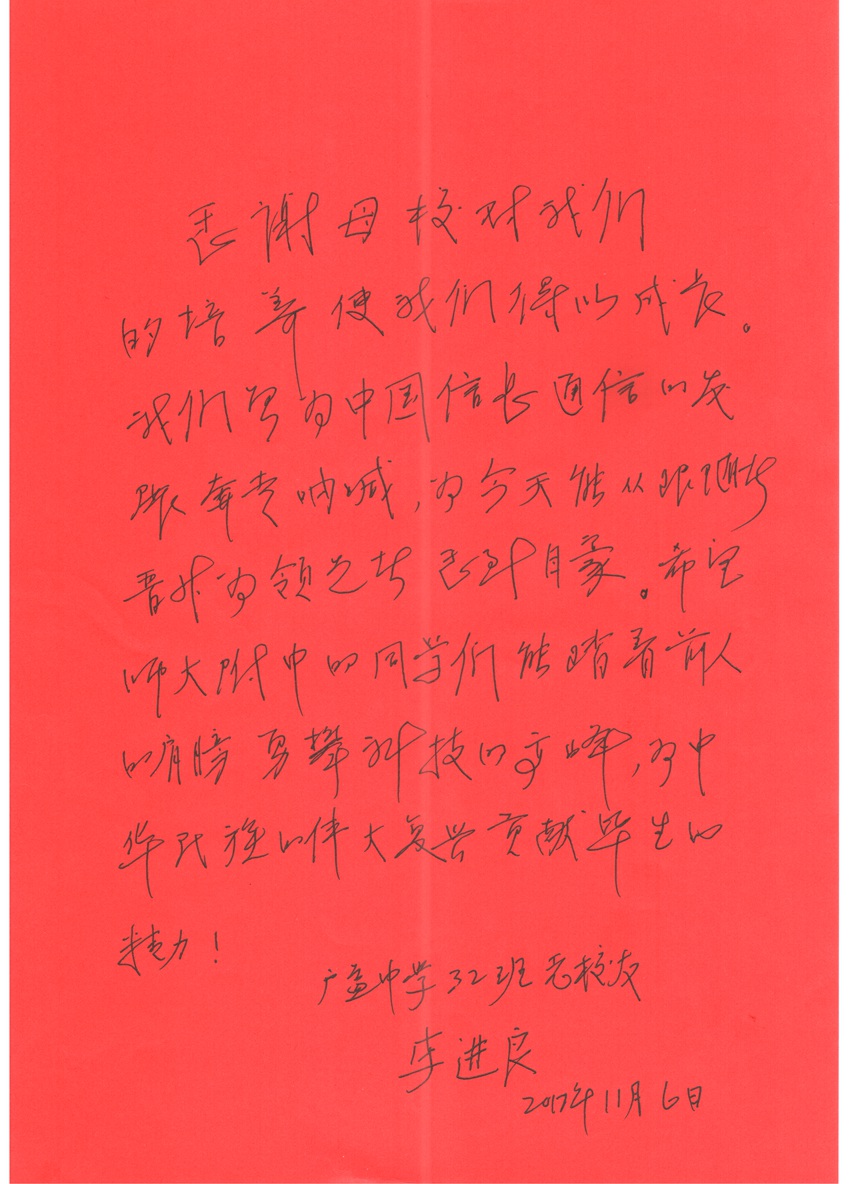 感谢母校对我们
的培养使我们得以成长。
我们曾为中国信息通信的发
展奔走呐喊,为今天能从跟随者
晋升为领先者感到自豪。希望
师大附中的同学们能踏着前人
的肩膀勇攀科技的高峰,为中
华民族的伟大复兴贡献毕生的
精力!
广益中学32班老校友
李进良
2017年11月6日